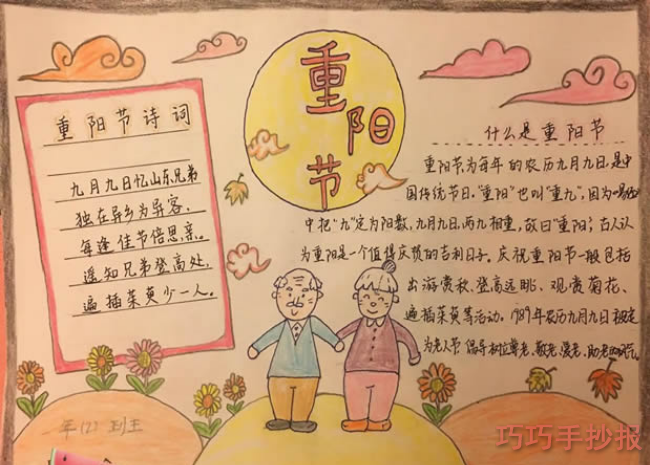 重阳节
重阳节诗词
九月九日忆山东兄弟
独在异乡为异客,
每逢佳节倍思亲。
遥知兄弟登高处,
遍插茱萸少一人。
什么是重阳节
重阳节,为每年的农历九月九日,是中
国传统节日。“重阳”也叫“重九”,因为《易经》
中把“九”定为阳数,九月九日,两九相重,故曰“重阳”;古人认
为重阳是一个值得庆贺的吉利日子。庆祝重阳节一般包括
出游赏秋、登高远眺、观赏菊花、
遍插茱萸等活动。1989年农历九月九日被定
为老人节,倡导树立尊老、敬老、爱老、助老的
年(2)班
巧巧手抄报